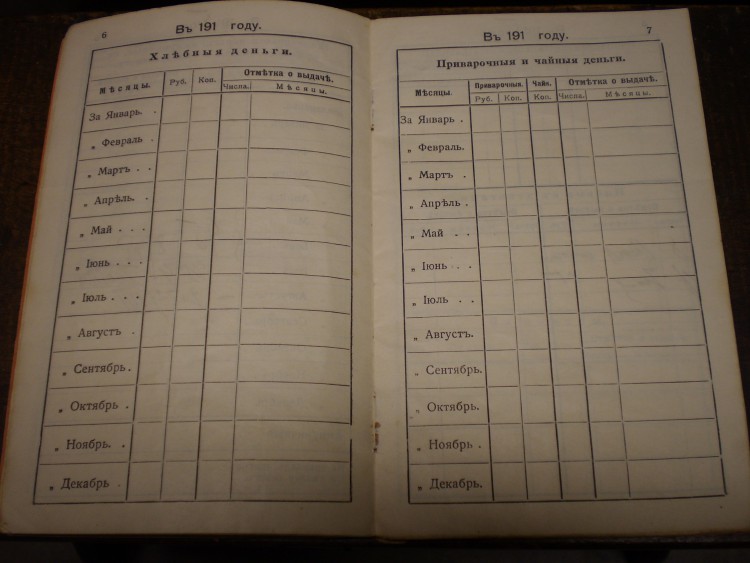 6
Въ 191 году.
Хлѣбныя деньги.
Мѣсяцы. Руб. Коп. Отмѣтка о выдачѣ.
Числа. Мѣсяцы.
За Январь. .
„ Февраль .
„ Мартъ . .
„ Апрѣль. .
„ Май . . .
„ Іюнь . . .
„ Іюль . . .
„ Августъ .
„ Сентябрь .
„ Октябрь .
„ Ноябрь. .
„ Декабрь .
7
Въ 191 году.
Приварочныя и чайныя деньги.
Мѣсяцы. Приварочныя. Чайн. Отмѣтка о выдачѣ.
Руб. Коп. Коп. Числа. Мѣсяцы.
За Январь .
„ Февраль.
„ Мартъ .
„ Апрѣль .
„ Май . .
„ Іюнь . .
„ Іюль . .
„ Августъ.
„ Сентябрь.
„ Октябрь.
„ Ноябрь .
„ Декабрь.